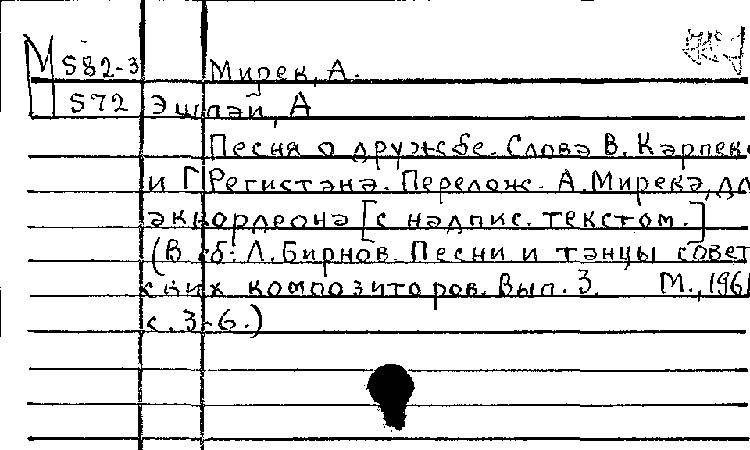 М S82-3 Мирек, А.
S72 Эшпай, А
Песня о дружбе. Слова В. Карпеко
и Г Регистана. Перелож. А. Мирека, дл
аккордеона [с надпис. текстом.]
(В сб: Л. Бирнов. Песни и танцы совет
ских композиторов. Вып. 3. М., 1961
с. 3-6.)